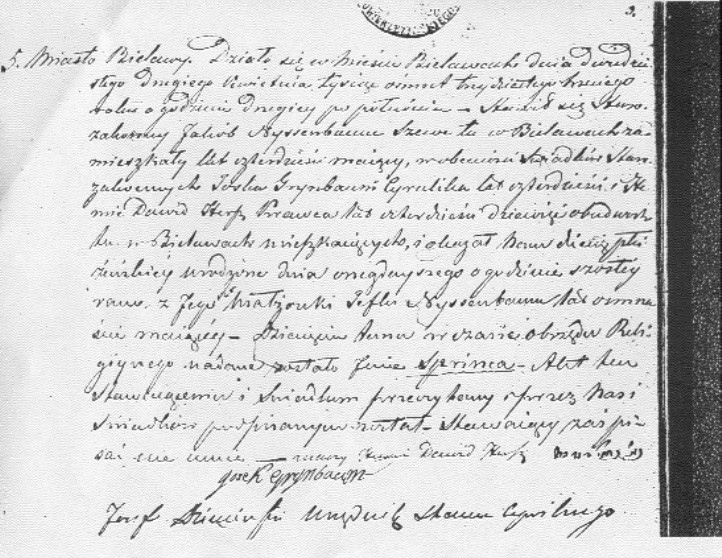 3.
5. Miasto Bielawy. Działo się w Mieście Bielawach dnia dwudzie-
stego drugiego Kwietnia tysiąc ośmset trzydziestego trzeciego
roku o godzinie drugiey po południu – Stawił się Staro-
zakonny Jakób Nyssenbaum Szewc tu w Bielawach za-
mieszkały lat czterdzieści maiący, w obecności Świadków Star-
zakonnych Joska Grynbaum Cyrulika lat czterdzieści i
Dawid Herß Krawca lat czterdzieści dziewięć obudwóch
tu w Bielawach mieszkaiących, i okazał Nam dziecię płci
żeńskiey urodzone dnia onegdayszego o godzinie szóstey
rano z Jego Małżonki Nyssenbaum lat
maiącey – Dziecięciu temu w czasie obrzędu Reli-
giynego nadane zostało Imie Sprinca – Akt ten
Stawaiącemu i Świadkom przeczytany i przez Nas i
Świadków podpisanym został – Stawaiący zaś pi-
sać nie umie – Dawid Herß
Josek Grynbaum
Józef Urzędnik Stanu Cywilnego